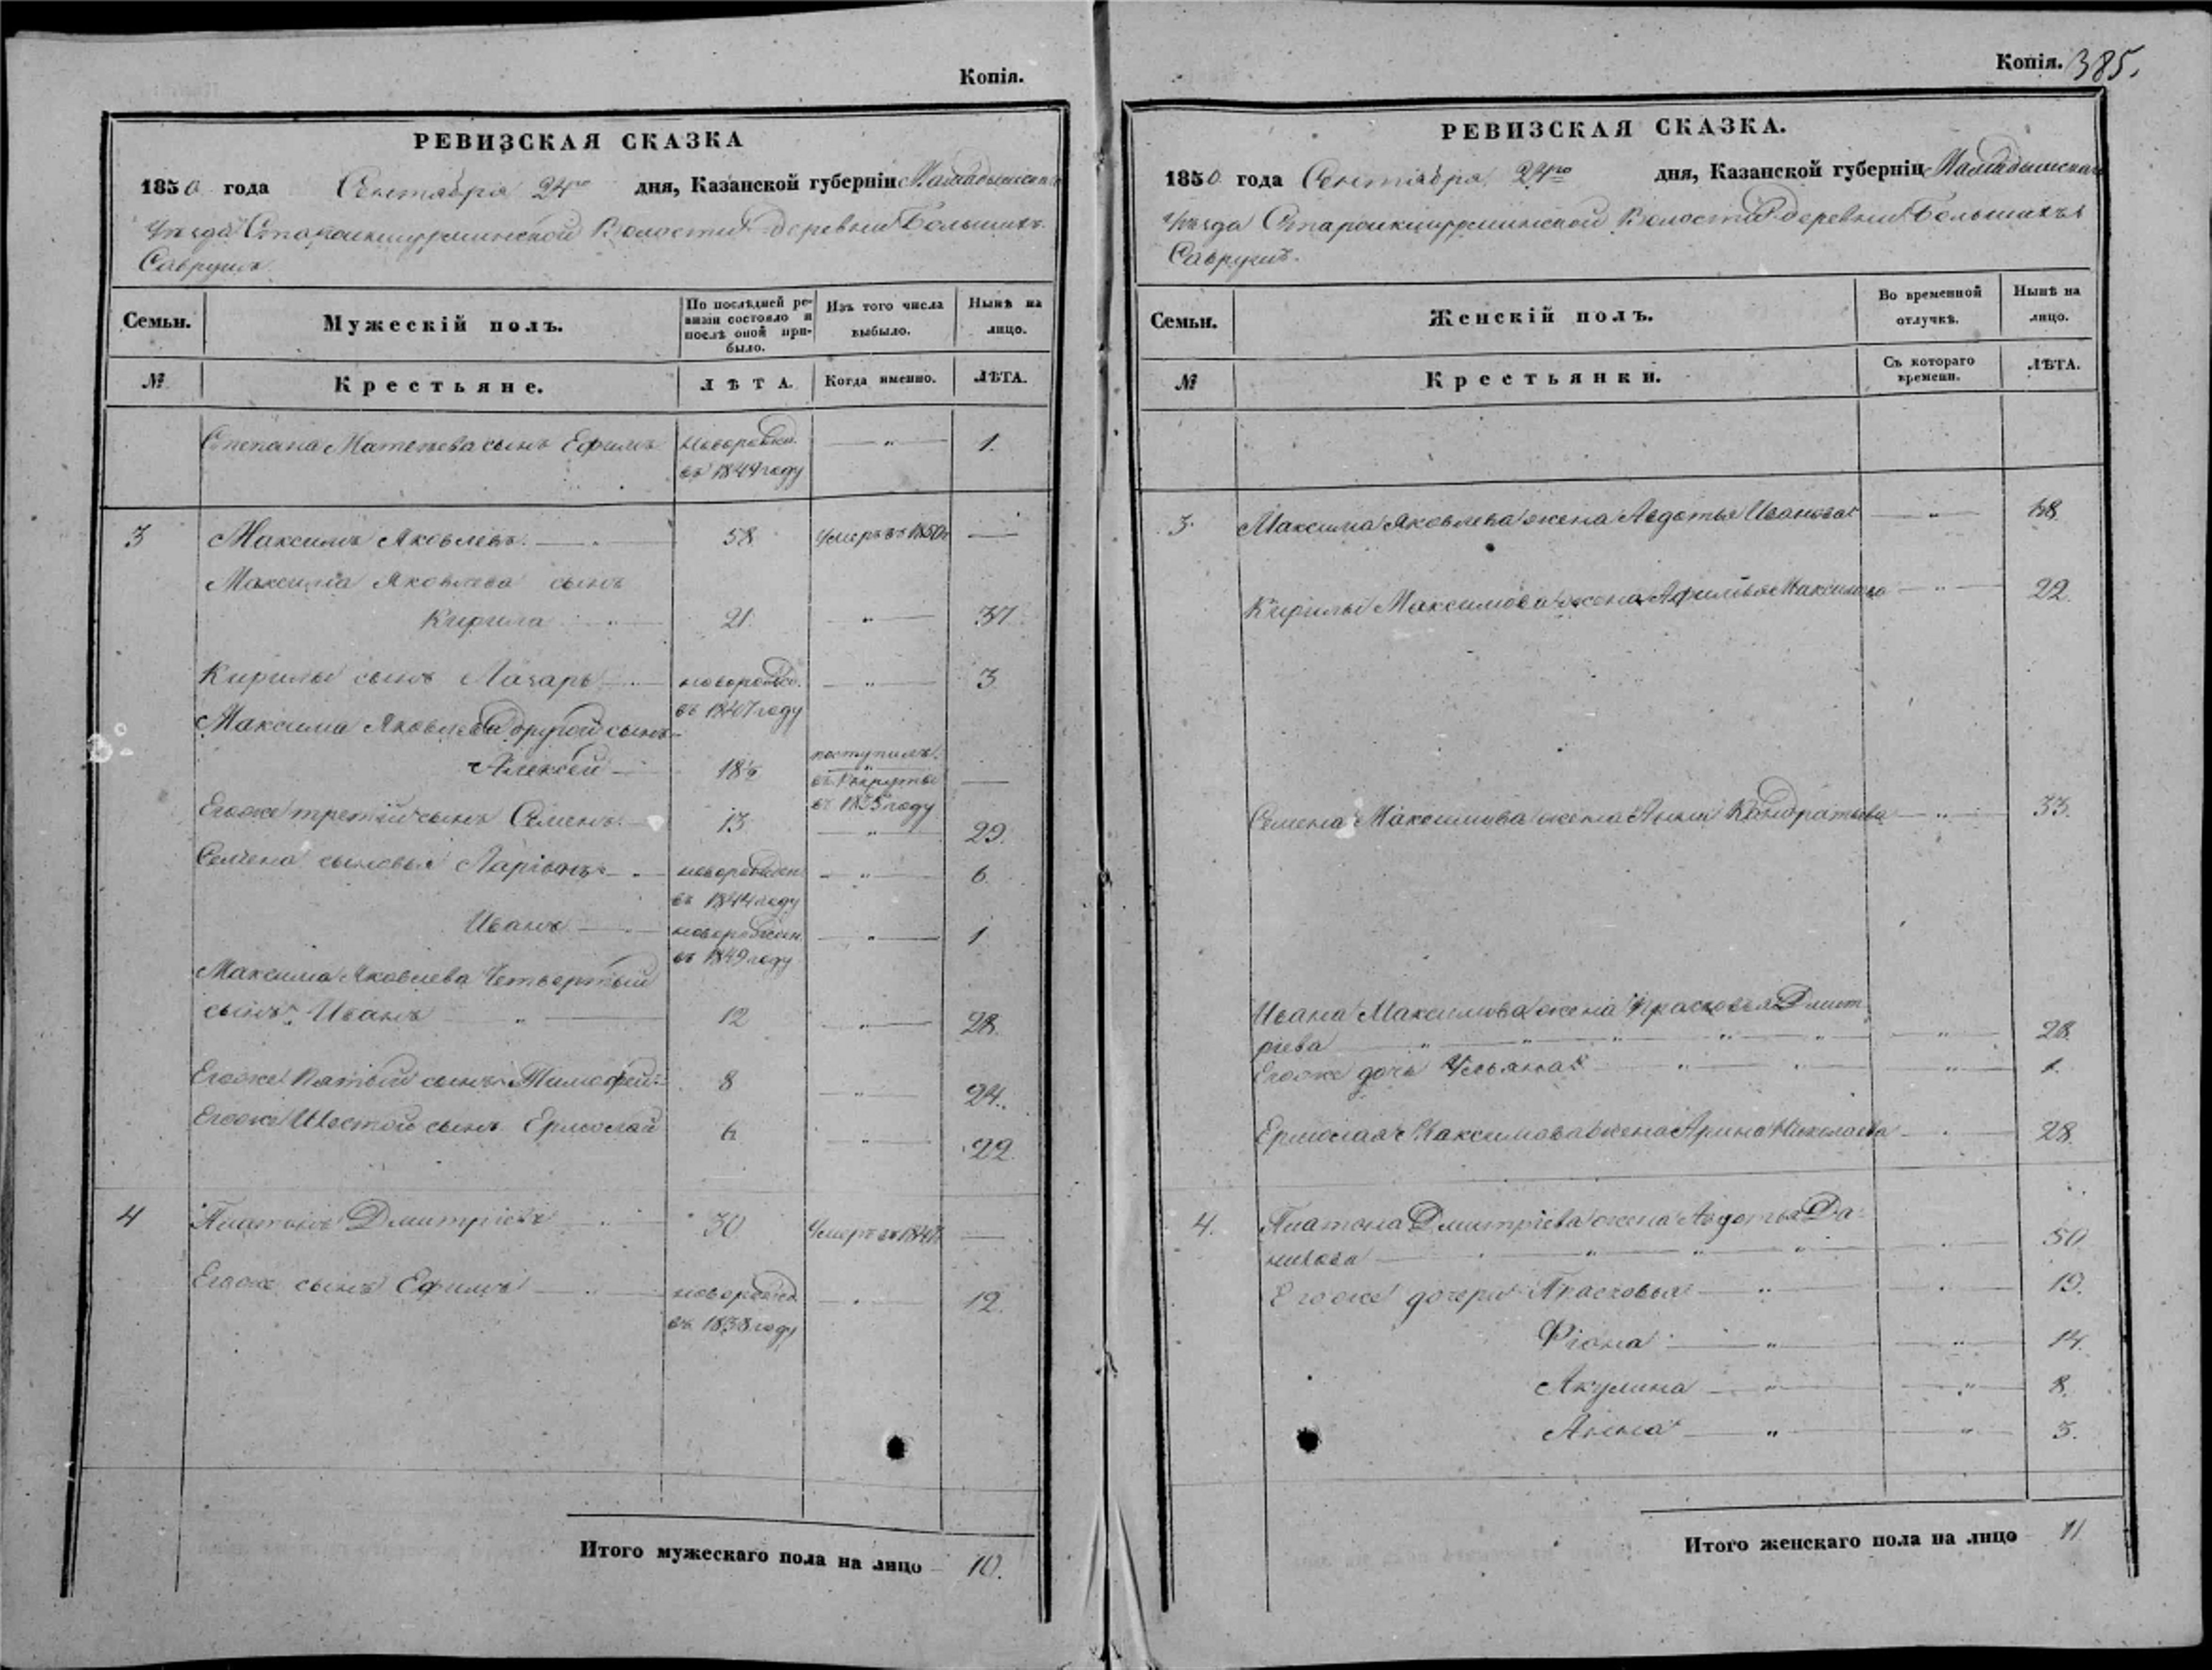 Копія.
РЕВИЗСКАЯ СКАЗКА
1850 года Сентября 24го дня, Казанской губерніи Мамадышскаго
Уѣзда Волости деревни Большихъ
Саврушъ
Семьи.
Мужескій полъ.
По послѣдней ре-
визіи состояло и
послѣ оной при-
было.
Изъ того числа
выбыло.
Нынѣ на
лицо.
№
Крестьяне.
ЛѢТА.
Когда именно.
ЛѢТА.
Степана Матвѣева сынъ Ефимъ новорожд. — " — 1.
въ 1849 году
3 Максимъ Яковлевъ. — 58 Умеръ въ 1850 —
Максима Яковлева сынъ
Кирила — " — 21. — " — 37.
Кирилы сынъ Лазарь — новорожд. — " — 3
въ 1847 году
Максима Яковлева другой сынъ
Алексей — 18½ поступилъ —
въ Рекруты
въ 1835 году
Егоже третій сынъ Семенъ. — 13 — " — 29.
Семена сыновья Ларіонъ — новорожден. — " — 6.
въ 1844 году
Иванъ — новорожден. — " — 1
въ 1849 году
Максима Яковлева Четвертый
сынъ Иванъ — " — 12 — " — 28.
Егоже Пятый сынъ Тимофей 8 — " — 24.
Егоже Шестой сынъ Ермолай 6 — " — 22.
4 Платонъ Дмитріевъ — " — 30 Умеръ въ —
Егоже сынъ Ефимъ — " — новорожд. — " — 12.
въ 1838 году
Итого мужескаго пола на лицо 10.
Копія. 385.
РЕВИЗСКАЯ СКАЗКА.
1850 года Сентября 24го дня, Казанской губерніи Мамадышскаго
Уѣзда Волости деревни Большихъ
Саврушъ.
Семьи.
Женскій полъ.
Во временной
отлучкѣ.
Нынѣ на
лицо.
№
Крестьянки.
Съ котораго
времени.
ЛѢТА.
3. Максима Яковлева жена Авдотья Иванова — " — 58
Кирилы Максимова жена Афимья Максимова — " — 22.
Семена Максимова жена Анна Кандратьева — " — 33.
Ивана Максимова жена Прасковья Дмит
ріева — " — " — " — " — " — 28.
Егоже дочь Ульяна — " — " — " — 1.
Ермолая Максимова жена Арина Николаева — " — 28.
4. Платона Дмитріева жена Авдотья Да-
нилова — " — " — " — 50
Егоже дочери Прасковья — " — " — 19.
Фіона — " — " — 14.
Акулина — " — " — 8.
Анна — " — " — 3.
Итого женскаго пола на лицо 11.